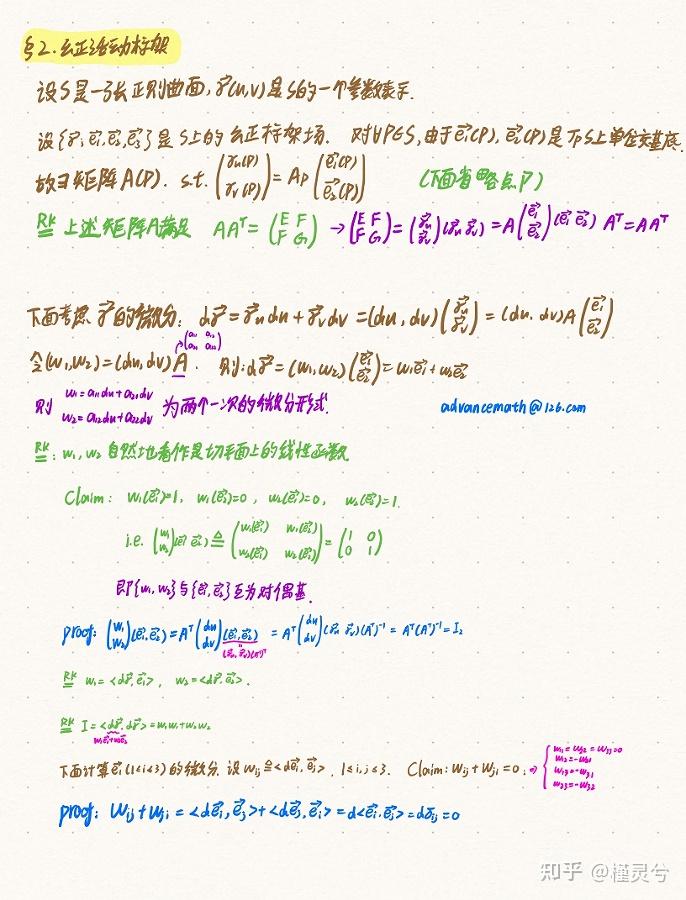 §2. 幺正活动标架
设S是一张正则曲面, r⃗(u,v)是S的一个参数表示.
设{r⃗; e⃗₁, e⃗₂, e⃗₃}是S上的幺正标架场. 对∀P∈S, 由于e⃗₁(P), e⃗₂(P)是TₚS上单位正交基底.
故∃矩阵A(P). s.t. (r⃗ᵤ(P) ; r⃗ᵥ(P)) = Aₚ (e⃗₁(P) ; e⃗₂(P)) (下面省略点P)
RK 上述矩阵A满足 AAᵀ = (E F ; F G) → (E F ; F G) = (r⃗ᵤ ; r⃗ᵥ)(r⃗ᵤ r⃗ᵥ) = A (e⃗₁ ; e⃗₂)(e⃗₁ e⃗₂) Aᵀ = AAᵀ
下面考虑 r⃗的微分: dr⃗ = r⃗ᵤdu + r⃗ᵥdv = (du, dv)(r⃗ᵤ ; r⃗ᵥ) = (du, dv)A(e⃗₁ ; e⃗₂)
令(w₁, w₂) = (du, dv)A → (a₁₁ a₁₂ ; a₂₁ a₂₂). 则: dr⃗ = (w₁, w₂)(e⃗₁ ; e⃗₂) = w₁e⃗₁ + w₂e⃗₂
则 w₁ = a₁₁du + a₂₁dv
w₂ = a₁₂du + a₂₂dv 为两个一次的微分形式. advancemath@126.com
RK: w₁, w₂ 自然地看作是切平面上的线性函数
Claim: w₁(e⃗₁)=1, w₁(e⃗₂)=0, w₂(e⃗₁)=0, w₂(e⃗₂)=1.
i.e. (w₁ ; w₂)(e⃗₁ e⃗₂) ≜ (w₁(e⃗₁) w₁(e⃗₂) ; w₂(e⃗₁) w₂(e⃗₂)) = (1 0 ; 0 1)
即{w₁, w₂}与{e⃗₁, e⃗₂}互为对偶基.
proof: (w₁ ; w₂)(e⃗₁, e⃗₂) = Aᵀ(du ; dv)(e⃗₁, e⃗₂) = Aᵀ(du ; dv)(r⃗ᵤ r⃗ᵥ)(Aᵀ)⁻¹ = Aᵀ(Aᵀ)⁻¹ = I₂
(r⃗ᵤ, r⃗ᵥ)(Aᵀ)⁻¹
RK w₁ = <dr⃗, e⃗₁>, w₂ = <dr⃗, e⃗₂>.
RK I = <dr⃗, dr⃗> = w₁w₁ + w₂w₂
w₁e⃗₁+w₂e⃗₂
下面计算e⃗ᵢ(1≤i≤3)的微分. 设 wᵢⱼ ≜ <de⃗ᵢ, e⃗ⱼ>, 1≤i,j≤3. Claim: wᵢⱼ + wⱼᵢ = 0. ⇒ { w₁₁ = w₂₂ = w₃₃ = 0
w₁₂ = -w₂₁
w₁₃ = -w₃₁
w₂₃ = -w₃₂
proof: wᵢⱼ + wⱼᵢ = <de⃗ᵢ, e⃗ⱼ> + <de⃗ⱼ, e⃗ᵢ> = d<e⃗ᵢ, e⃗ⱼ> = dδᵢⱼ = 0
知乎 @槿灵兮